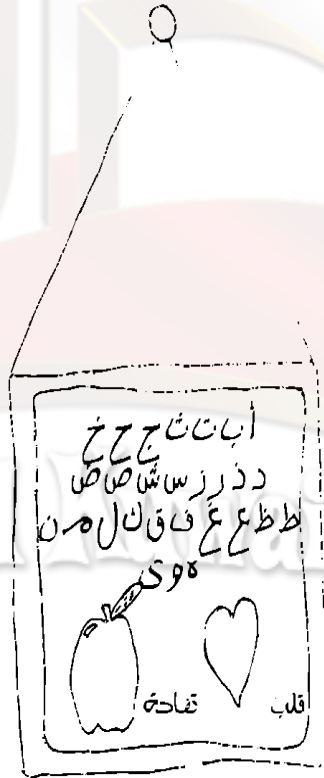 أ ب ت ث ج ح خ
د ذ ر ز س ش ص ض
ط ظ ع غ ف ق ك ل م ن
ه و ي
تفاحة
قلب